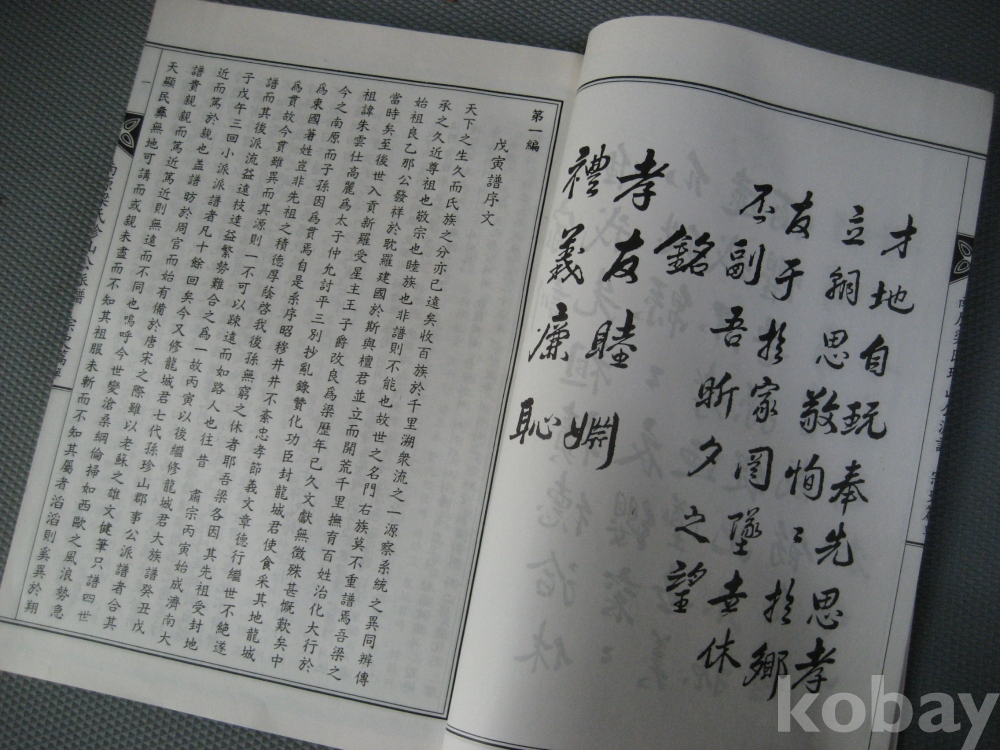 才地自玩奉先思孝
立 思敬恂〻於鄉
友于於家罔墜 休
丕副吾昕夕之望
銘
孝友睦婣
禮義廉恥
第一編
戊寅譜序文
天下之生久而氏族之分亦已遠矣收百族於千里溯衆流之一源察系統之異同辨傳
承之久近尊祖也敬宗也睦族也非譜則不能也故世之名門右族莫不重譜焉吾梁之
始祖良乙那公發祥於耽羅建國於斯與檀君並立而開荒千里撫育百姓治化大行於
當時矣至後世入貢新羅受星主王子爵改良爲梁歷年已久文獻無徵殊甚慨歎矣中
祖諱朱雲仕高麗爲太子仲允討平三別抄亂錄贊化功臣封龍城君使食采其地龍城
今之南原而子孫因爲貫焉自是系序昭移井井不紊忠孝節義文章德行繼世不絶遂
爲東國著姓豈非先祖之積德厚蔭啓我後孫無窮之休者耶吾梁各因其先祖受封地
爲貫故今貫雖異而其源則一不可以踈遠而如路人也往昔 肅宗丙寅始成濟南大
譜而其後派流益遠枝達益繁勢難合之爲一故丙寅以後繼修龍城君大族譜癸丑戊
子戊午三回小派派譜者凡十餘回矣今又修龍城君七代孫珍山郡事公派譜者合其
近而篤於親也盖譜昉於周官而始有備於唐宋之際雖以老蘇之雄文健筆只譜四世
譜貴親親而篤近篤近則無遠而不同也嗚呼今世變滄桑綱倫掃如西歐之風浪勢急
天顯民彝無地可講而或親未盡而不知其祖服未斬而不知其屬者滔滔則奚異於翔
一
kobay